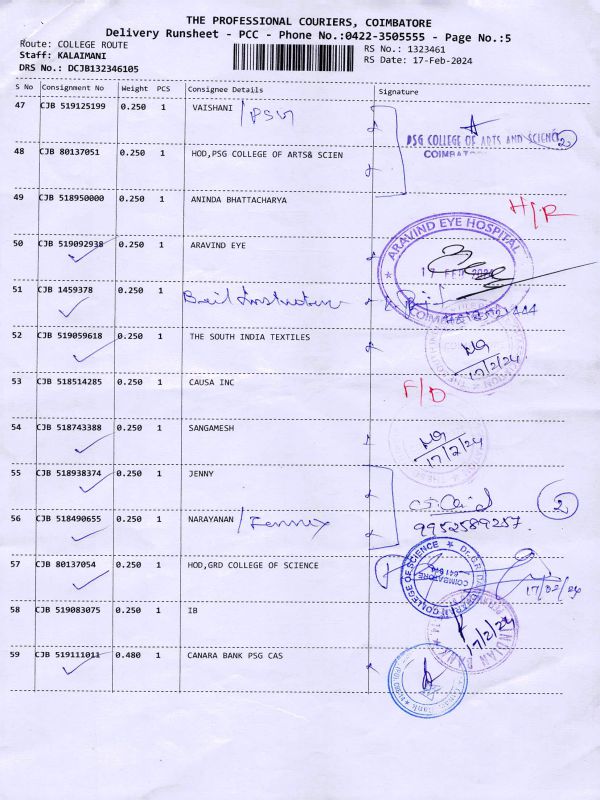 THE PROFESSIONAL COURIERS, COIMBATORE
Delivery Runsheet - PCC - Phone No.:0422-3505555 - Page No.:5
Route: COLLEGE ROUTE
RS No.: 1323461
Staff: KALAIMANI
RS Date: 17-Feb-2024
DRS No.: DCJB132346105
S No Consignment No Weight PCS Consignee Details Signature
47 CJB 519125199 0.250 1 VAISHANI / PSG
PSG COLLEGE OF ARTS AND SCIENCE 2
COIMBATORE
48 CJB 80137051 0.250 1 HOD,PSG COLLEGE OF ARTS& SCIEN
49 CJB 518950000 0.250 1 ANINDA BHATTACHARYA
H/R
50 CJB 519092938 0.250 1 ARAVIND EYE
ARAVIND EYE HOSPITAL
17 FEB 2024
COIMBATORE
51 CJB 1459378 0.250 1
52 CJB 519059618 0.250 1 THE SOUTH INDIA TEXTILES
17/2/24
53 CJB 518514285 0.250 1 CAUSA INC F/D
54 CJB 518743388 0.250 1 SANGAMESH
17/2/24
55 CJB 518938374 0.250 1 JENNY
2
56 CJB 518490655 0.250 1 NARAYANAN / Jenney
9952589257
57 CJB 80137054 0.250 1 HOD,GRD COLLEGE OF SCIENCE
COLLEGE OF SCIENCE
COIMBATORE
17/02/24
58 CJB 519083075 0.250 1 IB
INDIAN BANK
17/2/24
59 CJB 519111011 0.480 1 CANARA BANK PSG CAS